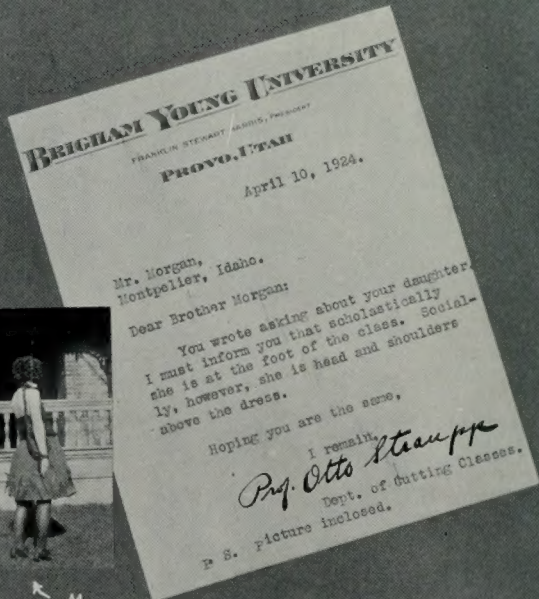 BRIGHAM YOUNG UNIVERSITY
FRANKLIN STEWART HARRIS, PRESIDENT
PROVO, UTAH
April 10, 1924.
Mr. Morgan,
Montpelier, Idaho.
Dear Brother Morgan:
You wrote asking about your daughter.
I must inform you that scholastically
she is at the foot of the class. Social-
ly, however, she is head and shoulders
above the dress.
Hoping you are the same,
I remain,
Prof. Otto Straupp
Dept. of Cutting Classes.
P S. picture inclosed.